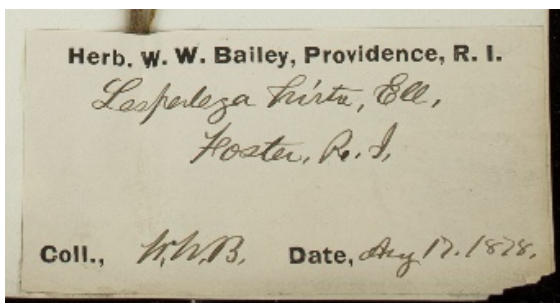 Herb. W. W. Bailey, Providence, R. I.
Lespedeza hirta, Ell,
Foster, R. I,
Coll., W. W. B. Date, Aug 17. 1878.